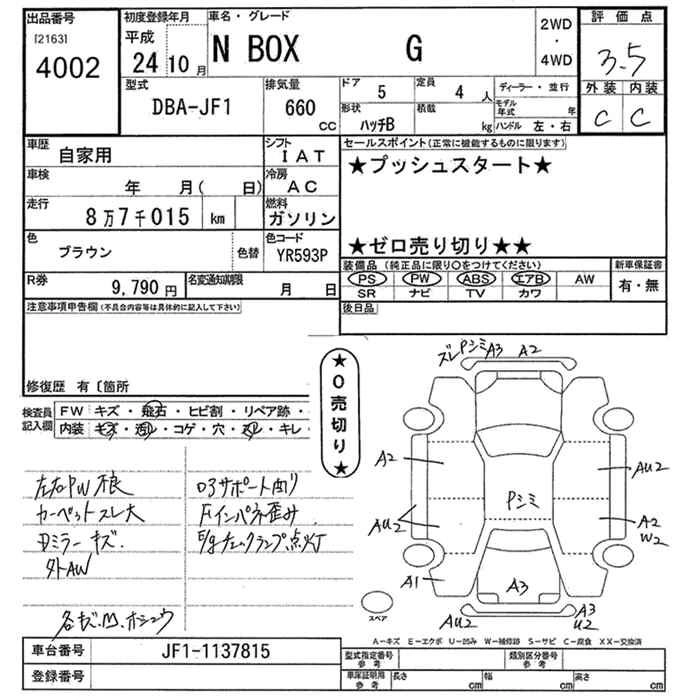 出品番号 初度登録年月 車名・グレード 2WD・4WD 評価点
[2163] 4002 平成 24 10月 N BOX G 3.5
型式 排気量 ドア 5 定員 4人 ディーラー・並行 外装 内装
DBA-JF1 660 CC 形状 ハッチB 積載 kg モデル年式 年 ハンドル 左・右 C C
車歴 自家用 シフト IAT セールスポイント(正常に機能するものに限ります)
車検 年 月( 日) 冷房 AC ★プッシュスタート★
走行 8万7千015 km 燃料 ガソリン
色 ブラウン 色替 色コード YR593P ★ゼロ売り切り★★
R券 9,790円 名変通知期限 月 日 装備品(純正品に限り○をつけてください) 新車保証書
PS PW ABS エアB AW 有・無
SR ナビ TV カワ
注意事項申告欄(不具合内容等は具体的に記入して下さい) 後日品
修復歴 有〔箇所
★0売切り★
検査員記入欄 FW キズ・飛石・ヒビ割・リペア跡・
内装 キズ・汚レ・コゲ・穴・スレ・キレ・
左右PW不良 ロアサポート曲り
カーペットスレ大 Fインパネ歪み
Dミラーキズ. E/gチェックランプ点灯
外AW
ズレ Pシミ A3 A2
A2 AU2
Pシミ
AU2 A2
W2
A1 A3
AU2 A3
U2
スペア
A-キズ E-エクボ U-凹み W-補修跡 S-サビ C-腐食 XX-交換済
車台番号 JF1-1137815 型式指定番号 参考 類別区分番号 参考
登録番号 車庫証明用 参考 長さ cm 幅 cm 高さ cm